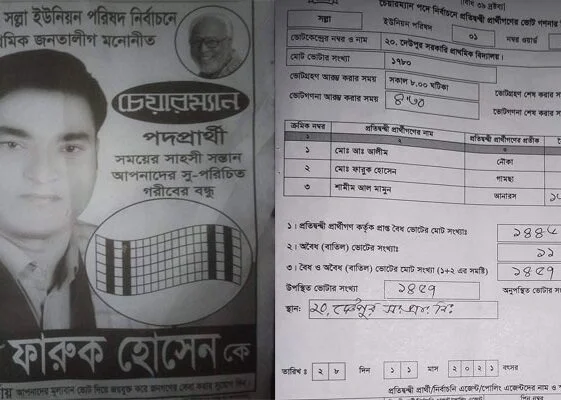 সল্লা ইউনিয়ন পরিষদ নির্বাচনে
জনতালীগ মনোনীত
চেয়ারম্যান
পদপ্রার্থী
সময়ের সাহসী সন্তান
আপনাদের সু-পরিচিত
গরীবের বন্ধু
ফারুক হোসেন কে
আপনাদের মূল্যবান ভোট দিয়ে জয়যুক্ত করে জনগণের সেবা করার সুযোগ দিন।
চেয়ারম্যান পদে নির্বাচনে প্রতিদ্বন্দ্বী প্রার্থীগণের ভোট গণনার
সল্লা ইউনিয়ন পরিষদ ০১ নম্বর ওয়ার্ড
ভোটকেন্দ্রের নম্বর ও নাম ২০. দেউপুর সরকারি প্রাথমিক বিদ্যালয়।
মোট ভোটার সংখ্যা ১৭৮০
ভোটগ্রহণ আরম্ভ করার সময় সকাল ৮.০০ ঘটিকা ভোটগ্রহণ শেষ করার
ভোটগণনা আরম্ভ করার সময় ভোটগণনা শেষ করার
ক্রমিক নম্বর প্রতিদ্বন্দ্বী প্রার্থীগণের নাম প্রতিদ্বন্দ্বী প্রার্থীগণের প্রতীক
১ ২ ৩
১ মোঃ আঃ আলীম নৌকা
২ মোঃ ফারুক হোসেন গামছা
৩ শামীম আল মামুন আনারস
১। প্রতিদ্বন্দ্বী প্রার্থীগণ কর্তৃক প্রাপ্ত বৈধ ভোটের মোট সংখ্যাঃ
২। অবৈধ (বাতিল) ভোটের সংখ্যাঃ ১১
৩। বৈধ ও অবৈধ (বাতিল) ভোটের মোট সংখ্যা (১+২ এর সমষ্টি)
উপস্থিত ভোটার সংখ্যা অনুপস্থিত ভোটার
স্থান: ২০. দেউপুর
তারিখঃ ২ ৮ দিন ১ ১ মাস ২ ০ ২ ১ বৎসর
প্রতিদ্বন্দ্বী প্রার্থী/নির্বাচনি এজেন্ট/পোলিং এজেন্টদের নাম ও